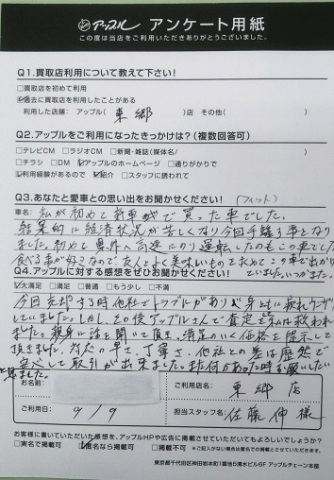 アップル アンケート用紙
この度は当店をご利用いただきありがとうございました。
Q1.買取店利用について教えて下さい!
□買取店を初めて利用
☑過去に買取店を利用したことがある
利用した店舗: アップル( 東郷 )店 その他( )
Q2.アップルをご利用になったきっかけは?(複数回答可)
□テレビCM □ラジオCM □新聞・雑誌(媒体名/ )
□チラシ □DM ☑アップルのホームページ □通りがかりで
☑利用経験があるので ☑紹介 □スタッフに誘われて
Q3.あなたと愛車との思い出をお聞かせください!
車名: (フィット)
私が初めて新車で買った車でした。
経済的に経済状況が苦しくなり今回手離す事となり
ました。初めて県外へ高速にのり運転したのもこの車でした。
食べる事が好きなので友人とよく美味いものを求めてこの車で出かけ
ていました。いつかまた。
Q4.アップルに対する感想をぜひお聞かせください!
☑大満足 □満足 □普通 □もう少し □不満
今日売却する時他社でトラブルがあり心身共に疲れ
していました。しかし、その後アップルさんで査定を 私は救われ
ました。親身に話を聞いて頂き、満足のいく価格を提示して
頂きました。対応の早さ、丁寧さ、他社との差は歴然で
安心して取引が出来ました。また何かあった時お願いしたい
と思いました
お名前
ご利用日 9/9
ご利用店名: 東郷店
担当スタッフ名: 佐藤伸様
お客様に書いていただいた感想を、アップルHPや広告に掲載させていただいてもよろしいでしょうか?
□実名で掲載可 ☑匿名なら掲載可 □掲載不可 ※ご記入がない場合は匿名での掲載とさせていただきます。
東京都千代田区神田岩本町1番地5清水ビル6F アップルチェーン本部